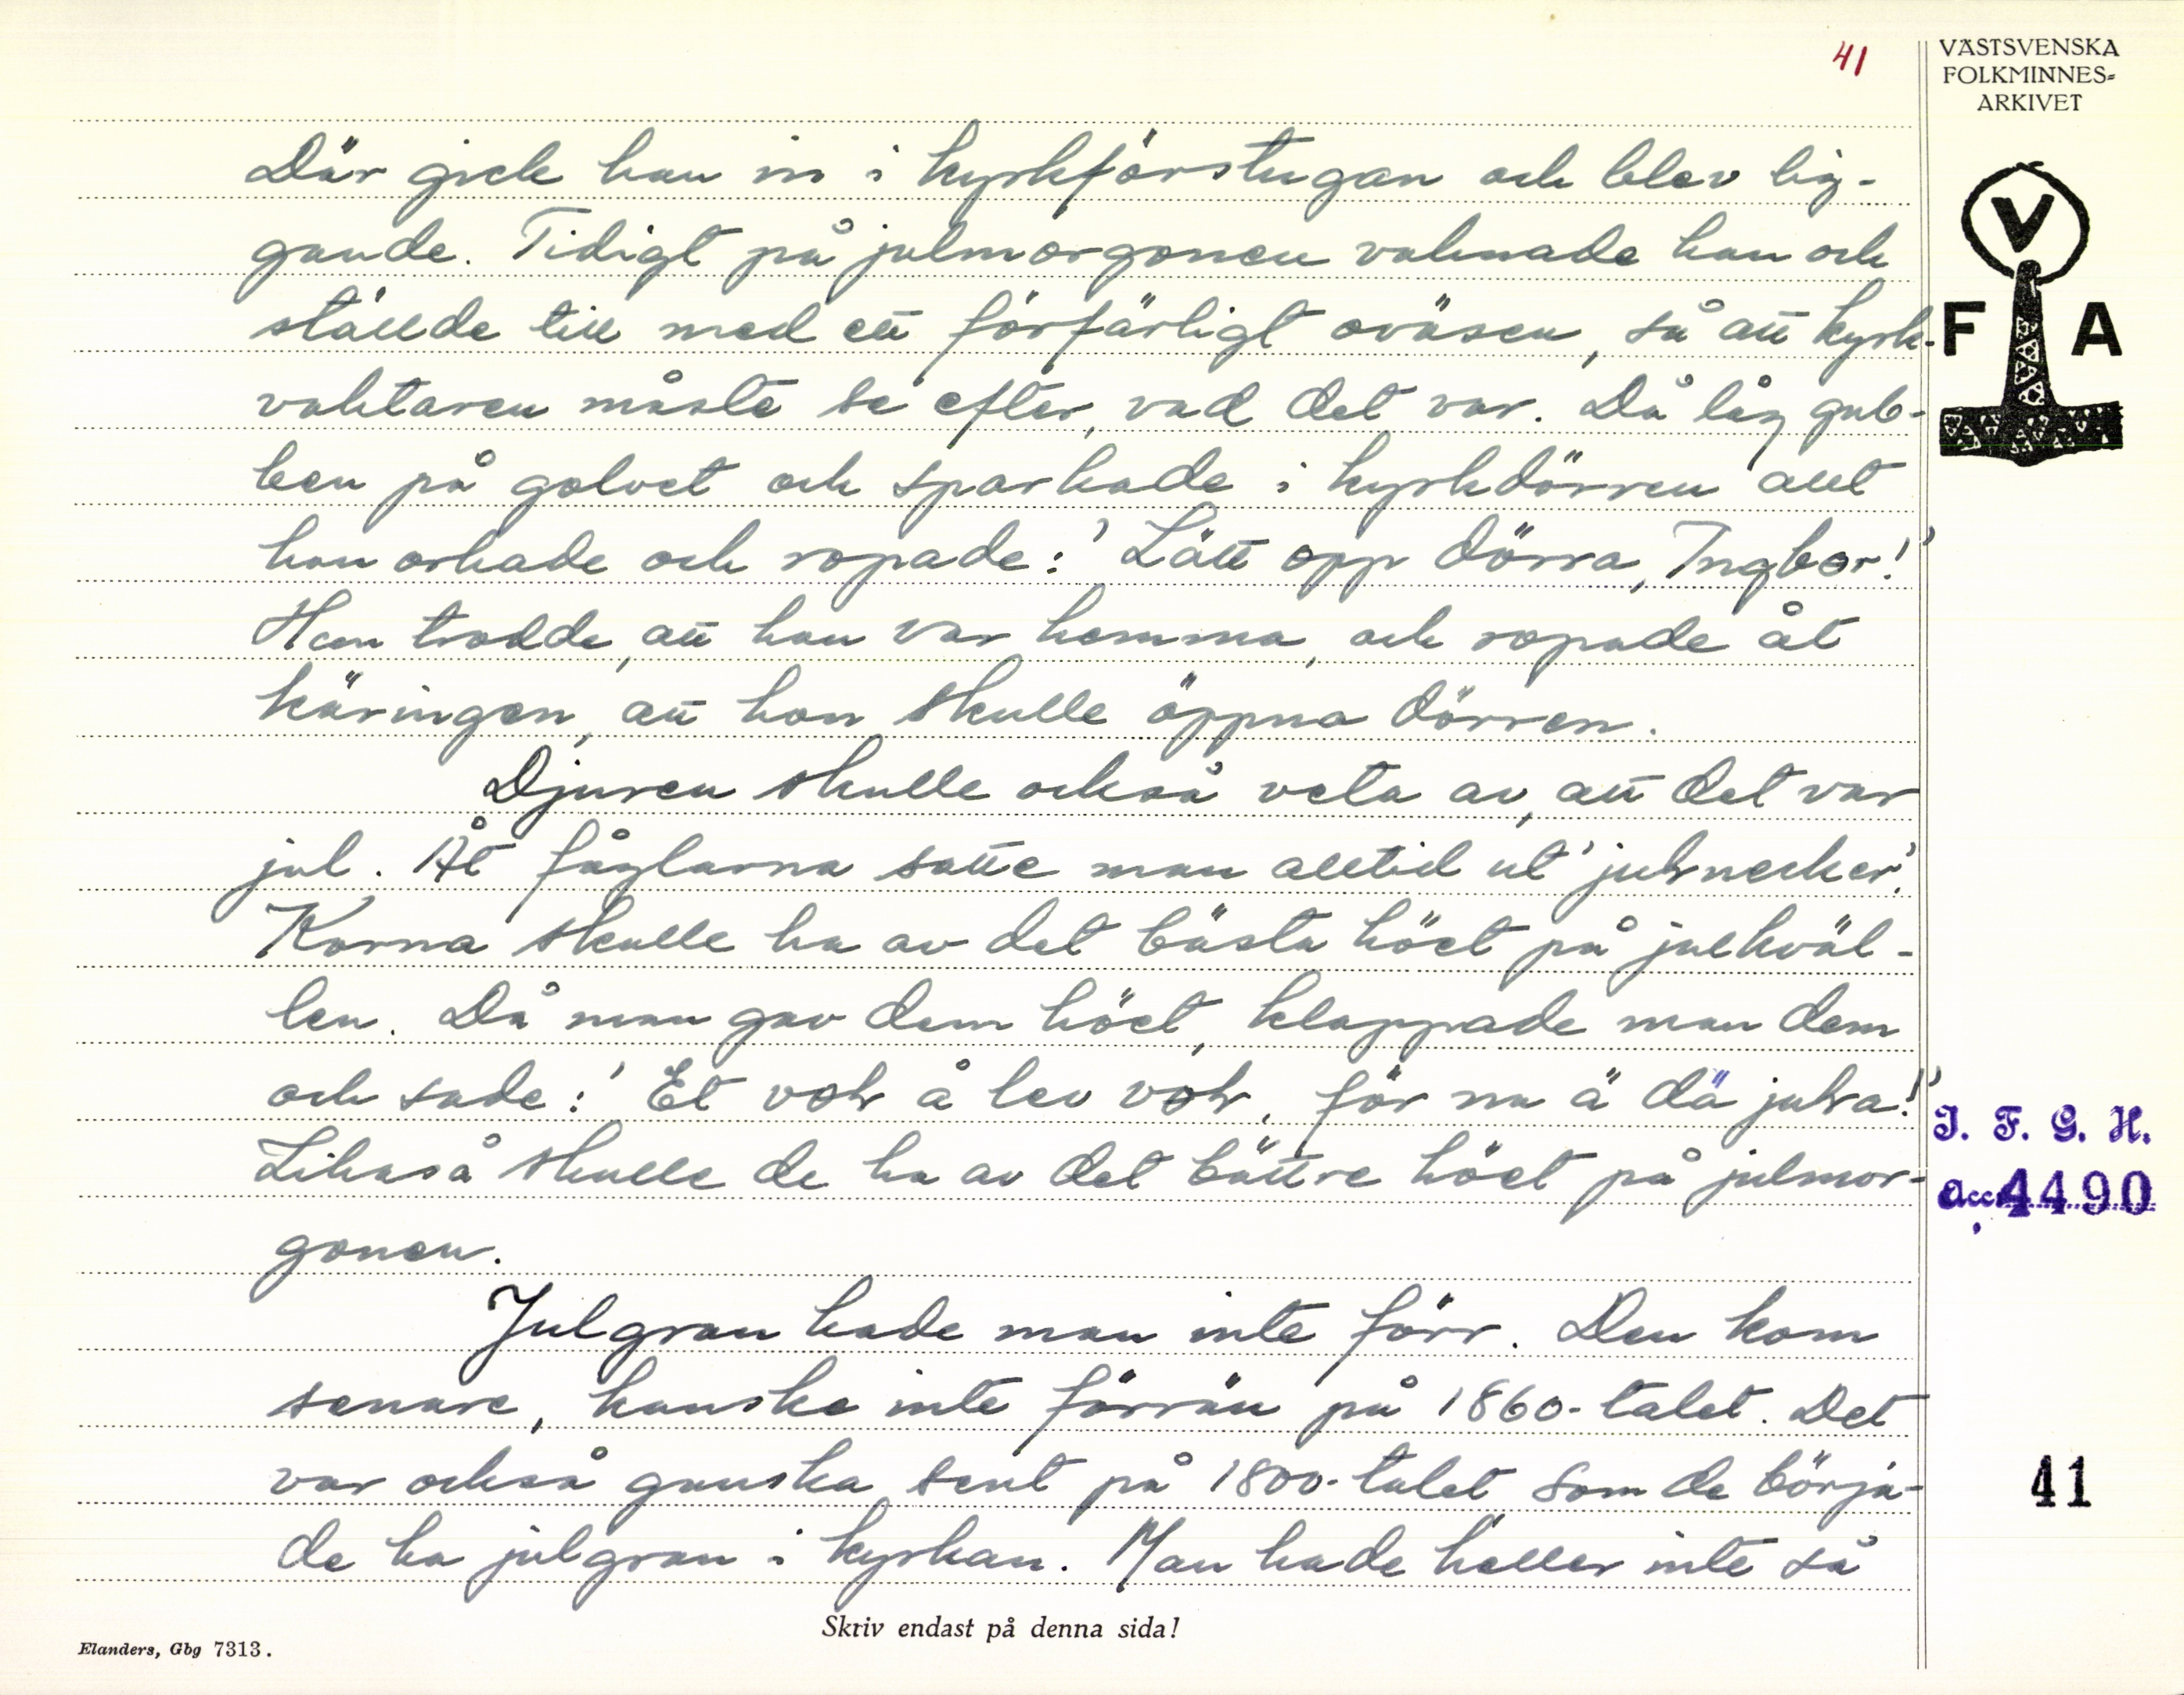 41
VÄSTSVENSKA
FOLKMINNES=
ARKIVET
Där gick han in i kyrkförstugan och blev lig-
gande. Tidigt på julmorgonen vaknade han och
ställde till med ett förfärligt oväsen, så att kyrk-
vaktaren måste se efter, vad det var. Då låg gub-
ben på golvet och sparkade i kyrkdörren allt
han orkade och ropade: 'Lätt opp dörra, Ingbor!'
Han trodde, att han var hemma, och ropade åt
käringen, att hon skulle öppna dörren.
Djuren skulle också veta av, att det var
jul. Åt fåglarna satte man alltid ut 'julnecker'.
Korna skulle ha av det bästa höet på julkväl-
len. Då man gav dem höet, klappade man dem
och sade: 'Et å lev, för nu ä dä jula!'
Likaså skulle de ha av det bättre höet på julmor-
gonen.
Julgran hade man inte förr. Den kom
senare, kanske inte förrän på 1860-talet. Det
var också ganska sent på 1800-talet som de börja-
de ha julgran i kyrkan. Man hade heller inte så
V
F A
I. F. G. H.
Acc. 4490
41
Skriv endast på denna sida!
Elanders, Gbg 7313.